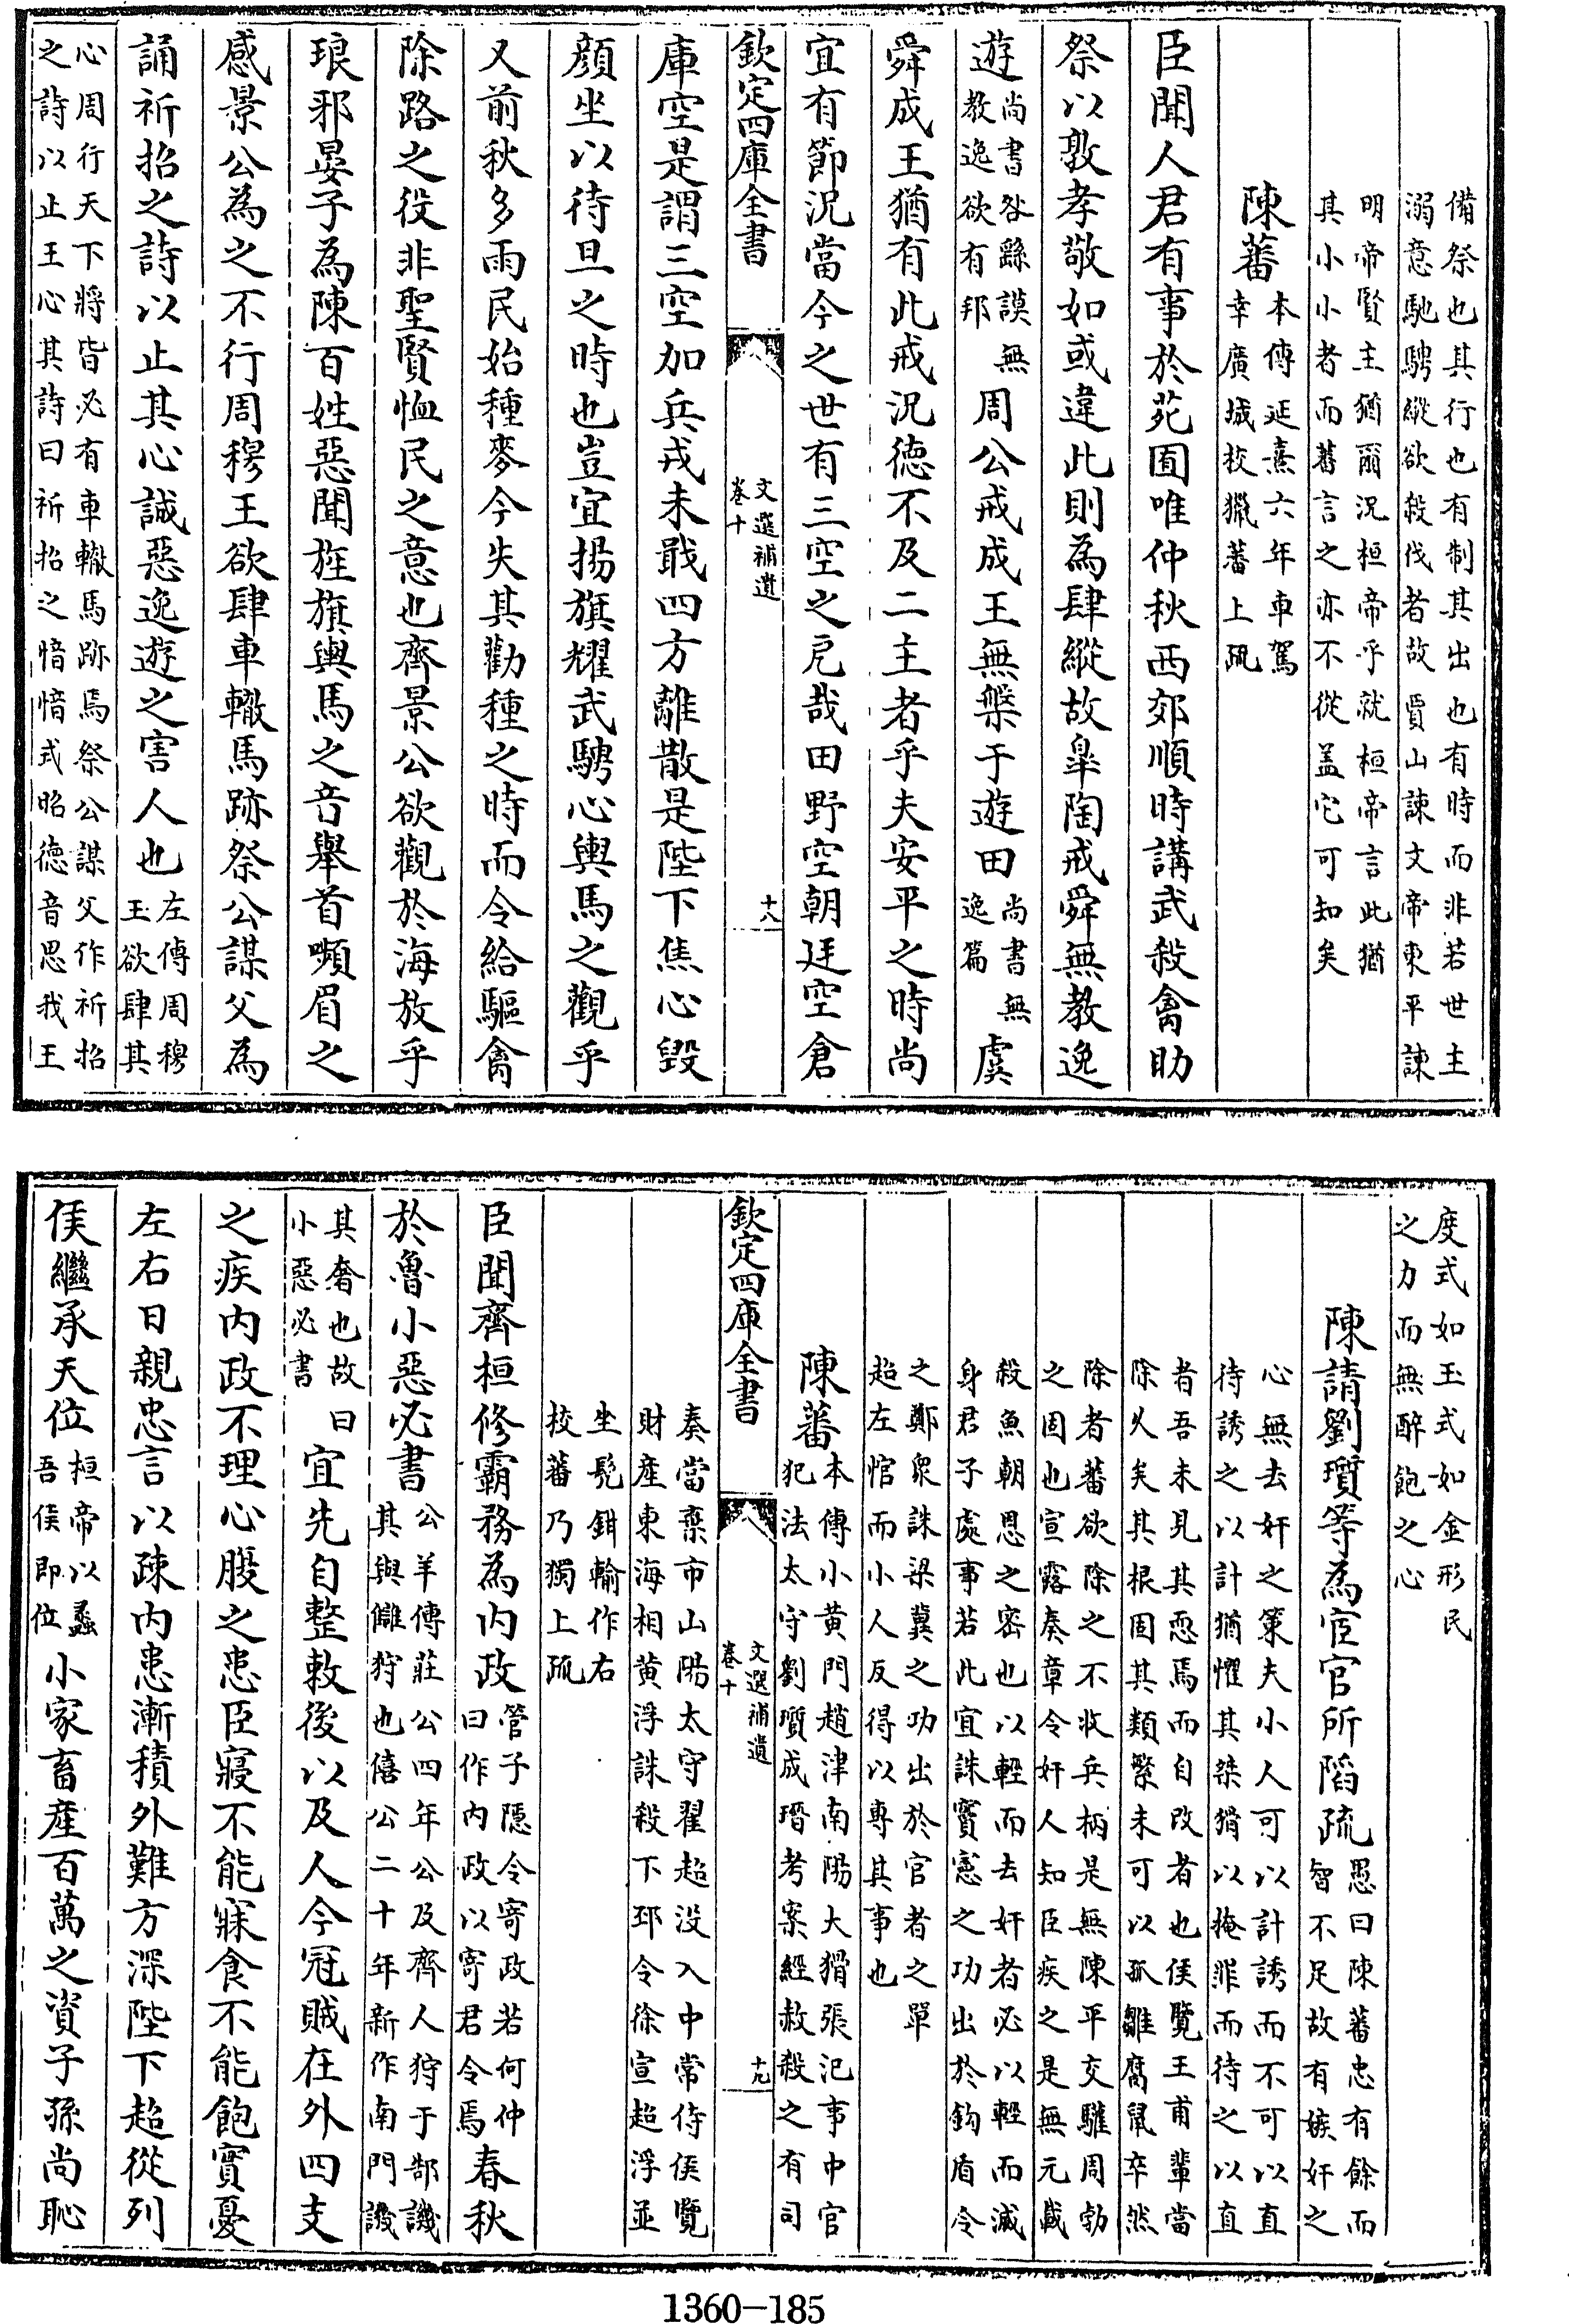 備祭也其行也有制其出也有時而非若世主
溺意馳騁縱欲殺伐者故賈山諫文帝東平諫
明帝賢主猶爾況桓帝乎就桓帝言此猶
其小小者而蕃言之亦不從盖它可知矣
陳蕃本傳延熹六年車駕幸廣城校獵蕃上疏
臣聞人君有事於苑囿唯仲秋西郊順時講武殺禽助
祭以敦孝敬如或違此則為肆縱故臯陶戒舜無教逸
遊尚書咎繇謨無教逸欲有邦周公戒成王無槃于遊田尚書無逸篇虞
舜成王猶有此戒況徳不及二主者乎夫安平之時尚
宜有節況當今之世有三空之戹哉田野空朝廷空倉
欽定四庫全書
文選補遺
卷十
十八
庫空是謂三空加兵戎未戢四方離散是陛下焦心毀
顔坐以待旦之時也豈宜揚旗耀武騁心輿馬之觀乎
又前秋多雨民始種麥今失其勸種之時而令給驅禽
除路之役非聖賢恤民之意也齊景公欲觀於海放乎
琅邪晏子為陳百姓惡聞旌旗輿馬之音舉首嚬眉之
感景公為之不行周穆王欲肆車轍馬跡祭公謀父為
誦祈招之詩以止其心誠惡逸遊之害人也左傳周穆王欲肆其
心周行天下將皆必有車轍馬跡焉祭公謀父作祈招
之詩以止王心其詩曰祈招之愔愔式昭德音思我王
度式如玉式如金形民
之力而無醉飽之心
陳請劉瓆等為宦官所䧟疏愚曰陳蕃忠有餘而智不足故有嫉奸之
心無去奸之策夫小人可以計誘而不可以直
待誘之以計猶懼其桀猾以掩罪而待之以直
者吾未見其悪焉而自改者也侯覽王甫輩當
除久矣其根固其類繁未可以孤雛腐鼠卒然
除者蕃欲除之不收兵柄是無陳平交驩周勃
之固也宣露奏章令奸人知臣疾之是無元載
殺魚朝恩之密也以輕而去奸者必以輕而滅
身君子處事若此宜誅竇憲之功出於鈎盾令
之鄭衆誅梁冀之功出於官者之單
超左悺而小人反得以專其事也
陳蕃本傳小黄門趙津南陽大猾張汜事中官犯法太守劉瓆成瑨考案經赦殺之有司
欽定四庫全書
文選補遺
卷十
十九
奏當棄市山陽太守翟超没入中常侍侯覽
財産東海相黄浮誅殺下邳令徐宣超浮並
坐髡鉗輸作右
校蕃乃獨上疏
臣聞齊桓修霸務為内政管子隱令寄政若何仲曰作内政以寄君令焉春秋
於魯小惡必書公羊傳莊公四年公及齊人狩于郜譏其與讎狩也僖公二十年新作南門譏
其奢也故曰小惡必書宜先自整敕後以及人今冦賊在外四支
之疾内政不理心腹之患臣寢不能寐食不能飽實憂
左右日親忠言以疎内患漸積外難方深陛下超從列
侯繼承天位桓帝以蠡吾侯即位小家畜産百萬之資子孫尚恥
1360-185